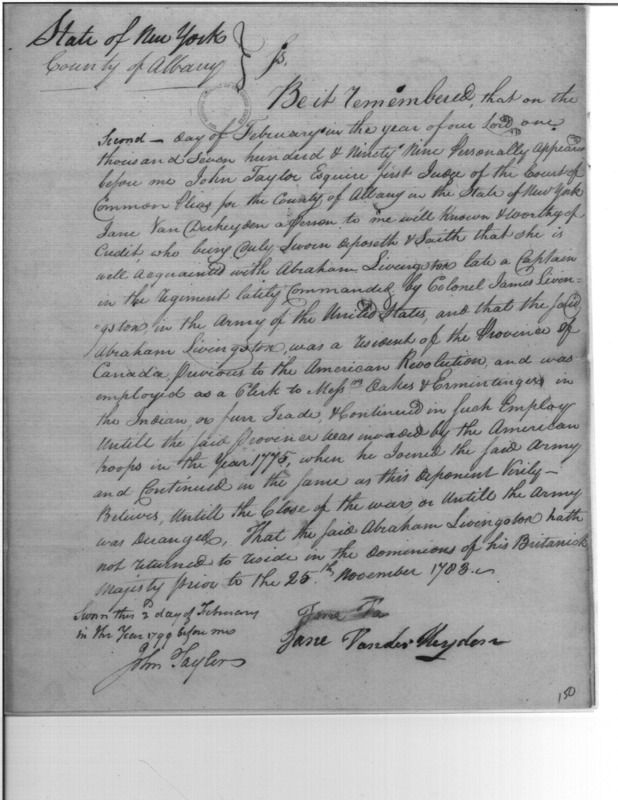 State of New York
County of Albany } ss.
Be it remembered, that on the
Second – day of February in the year of our Lord one
thousand Seven hundred & Ninety Nine Personally Appeared
before me John Taylor Esquire first Judge of the Court of
Common Pleas for the County of Albany in the State of New York
Jane Van Derheyden a person to me well Known & worthy of
Credit who being duly Sworn deposeth & Saith that she is
well acquainted with Abraham Livingston late a Captain
in the regiment lately Commanded by Colonel James Liven=
"gston, in the Army of the United States, and that the said
Abraham Livingston, was a resident of the Province of
Canada, previous to the American Revolution, and was
employed as a Clerk to Messrs Oakes & Ermintinger in
the Indian, or furr Trade, & Continued in such Employ
Untill the said Province was invaded by the American
troops in the Year 1775, when he Joined the said Army
and Continued in the same as this deponent Verily –
Believes, Untill the Close of the war or Untill the Army
was deranged, That the said Abraham Livingston hath
not returned to reside in the Dominions of his Britanick
Majesty prior to the 25th November 1783.
Sworn this 2d day of February
in the Year 1799 before me
John Taylor
Jane Va
Jane Vander Heyden
150